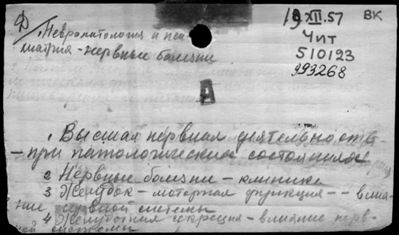 Д/ Невропатология и пси
хиатрия - нервные болезни
19 XII.57
ВК
Чит
510123
993268
А
1. Высшая нервная деятельность
- при патологических состояниях
2 Нервные болезни - клиника
3 Желудок - моторная функция - влия
ние нервной системы
4. Желудочная секреция - влияние нерв-
ной системы